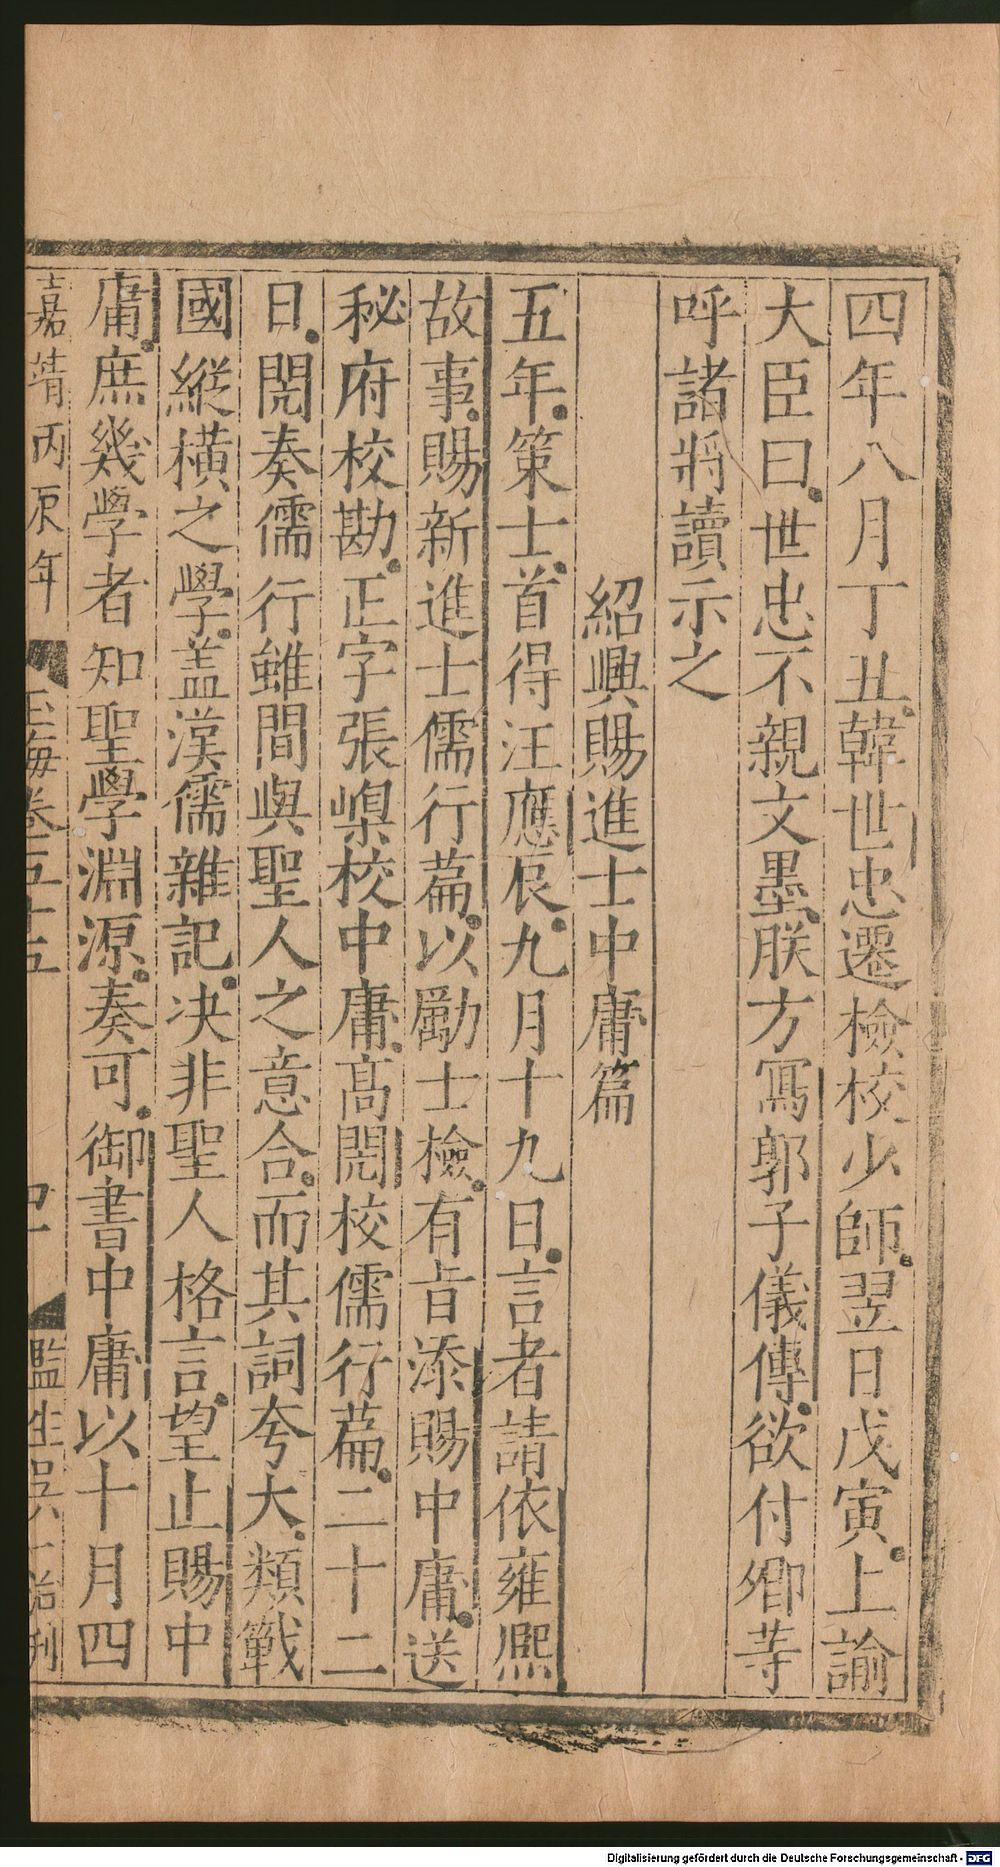 四年八月丁丑韓世忠遷檢校少師翌日戊寅上諭
大臣曰世忠不親文墨朕方寫郭子儀傳欲付卿等
呼諸將讀示之
紹興賜進士中庸篇
五年策士首得汪應辰九月十九日言者請依雍熈
故事賜新進士儒行篇以勵士檢有旨添賜中庸送
秘府校勘正字張嵲校中庸高閌校儒行篇二十二
日閌奏儒行雖間與聖人之意合而其詞夸大類戰
國縱橫之學盖漢儒雜記决非聖人格言望止賜中
庸庶幾學者知聖學淵源奏可御書中庸以十月四
嘉靖丙辰年 玉海卷五十五 監生吳一刊
Digitalisierung gefördert durch die Deutsche Forschungsgemeinschaft - DFG